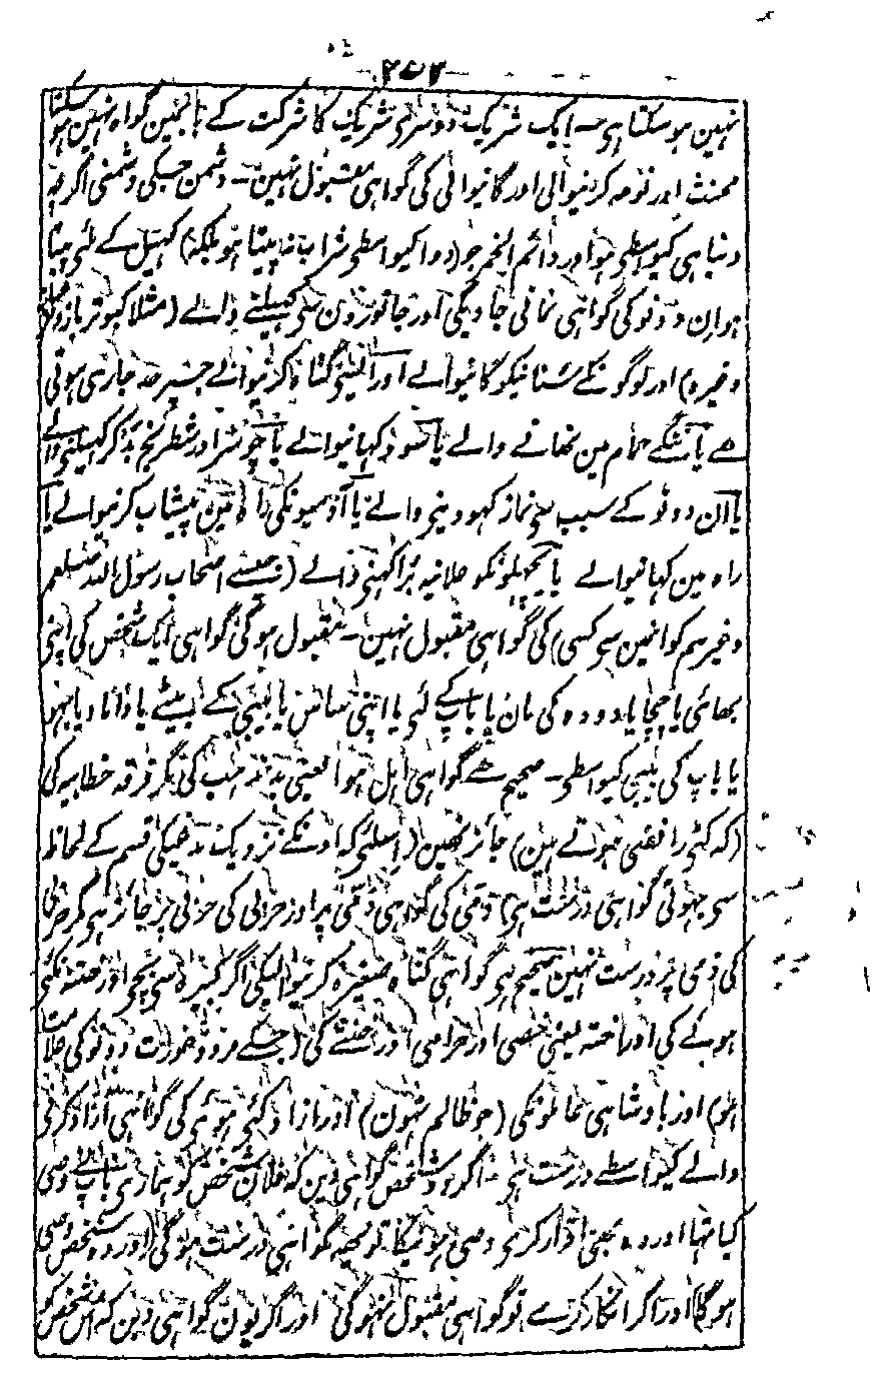 ۲۵۲
نہین ہو سکتا ہی۔ ایک شریک دوسری شریک کا شرکت کے مین گواہ نہین ہو سکتا
مخنث اور نوحہ کرنیوالی اور گانیوالی کی گواہی مقبول نہین۔ دشمن جسکی دشمنی اگرچہ
دنیا ہی کیواسطی ہو اور دائم الخمر جو (دوا کیواسطی شراب نہ پیتا ہو بلکہ) کہیل کے لئی پیتا
ہو ان دونو کی گواہی نمانی جاویگی اور جانورون سی کہیلنے والے (مثلا کبوتر باز
وغیرہ) اور لوگونکے سنانیکو گانیوالے اور ایسی گناہ کرنیوالے جسپر حد جاری ہوتی
ھے یا ننگے حمام مین نہانے والے یا سود کہانیوالے یا چوسر اور شطرنج بدکر کہیلنی والے
یا ان دونو کے سبب سی نماز کہو دینی والے یا آدمیونکی راہ مین پیشاب کرنیوالے یا
راہ مین کہانیوالے یا پچہلونکو علانیہ برا کہنی والے (جیسے اصحاب رسول اللہ صلعم
وغیرہم کو انمین سی کسی) کی گواہی مقبول نہین۔ مقبول ہوگی گواہی ایک شخص کی اپنی
بھائی یا چچا یا دودہ کی مان یا باپ کے لئی یا اپنی ساس یا بیبی کے بیٹے یا داماد یا بہو
یا باپ کی بیبی کیواسطی۔ صحیح ھے گواہی اہل ہوا یعنی بدمذہب کی مگر فرقہ خطابیہ کی
(کہ کٹی رافضی ہوتے ہین) جائز نھین (اسلئی کہ اونکے نزدیک مدعیکی قسم کے لحاظ
سی جہوٹی گواہی درست ہی) ذمی کی گواہی ذمی پر اور حربی کی حربی پر جائز ہی مگر حربی
کی ذمی پر درست نہین صحیح ہی گواہی گناہ صغیرہ کرنیوالیکی اگر کبیرہ سی بچی اور
ہوئے کی اور اختہ یعنی خصی اور حرامی اور خنثے کی (جسکے مرد و عورت دونو کی علامت
ہو) اور بادشاہی عاملونکی (جو ظالم نہون) اور ازاد کئی ہوئی کی گواہی ازاد کرنی
والے کیواسطے درست ہی۔ اگر دو شخص گواہی دین کہ فلان شخص کو ہماری باپ نے وصی
کیا تہا اور وہ بھی اقرار کری وصی ہونیکا تو یہ گواہی درست ہوگی (اور وہ شخص وصی
ہوگا) اور اگر انکار کرے تو گواہی مقبول نہوگی اور اگر یون گواہی دین کہ اس شخص کو